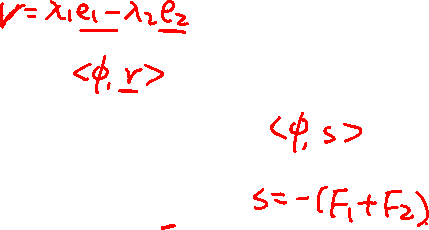 r = λ₁e₁ - λ₂e₂
<ϕ, r>
<ϕ, s>
s = -(F₁ + F₂)